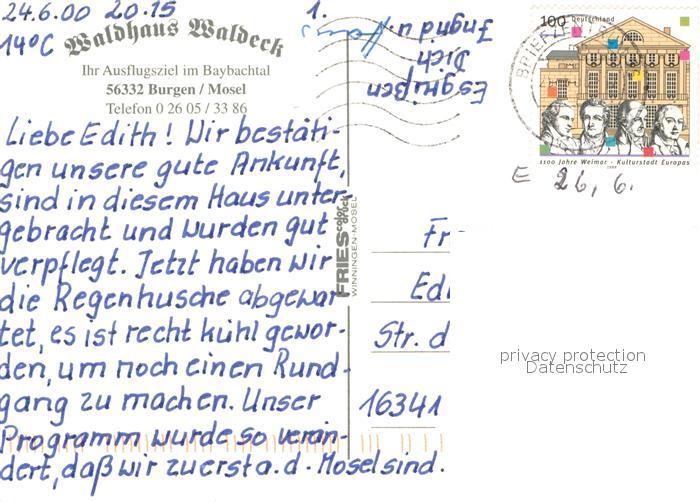 24.6.00 20.15
14°C
1.
Waldhaus Waldeck
Ihr Ausflugsziel im Baybachtal
56332 Burgen / Mosel
Telefon 0 26 05 / 33 86
Liebe Edith! Wir bestäti-
gen unsere gute Ankunft,
sind in diesem Haus unter-
gebracht und wurden gut
verpflegt. Jetzt haben wir
die Regenhusche abgewar
tet, es ist recht kühl gewor-
den, um noch einen Rund-
gang zu machen. Unser
Programm wurde so verän-
dert, daß wir zuerst a. d. Mosel sind.
Es grüßen
Dich
Ingrid u.
FRIES color druck
WINNINGEN-MOSEL
100 Deutschland
1100 Jahre Weimar - Kulturstadt Europas
1999
BRIEFZEN
E 26, 6.
Fr
Edi
Str. d
16341
privacy protection
Datenschutz